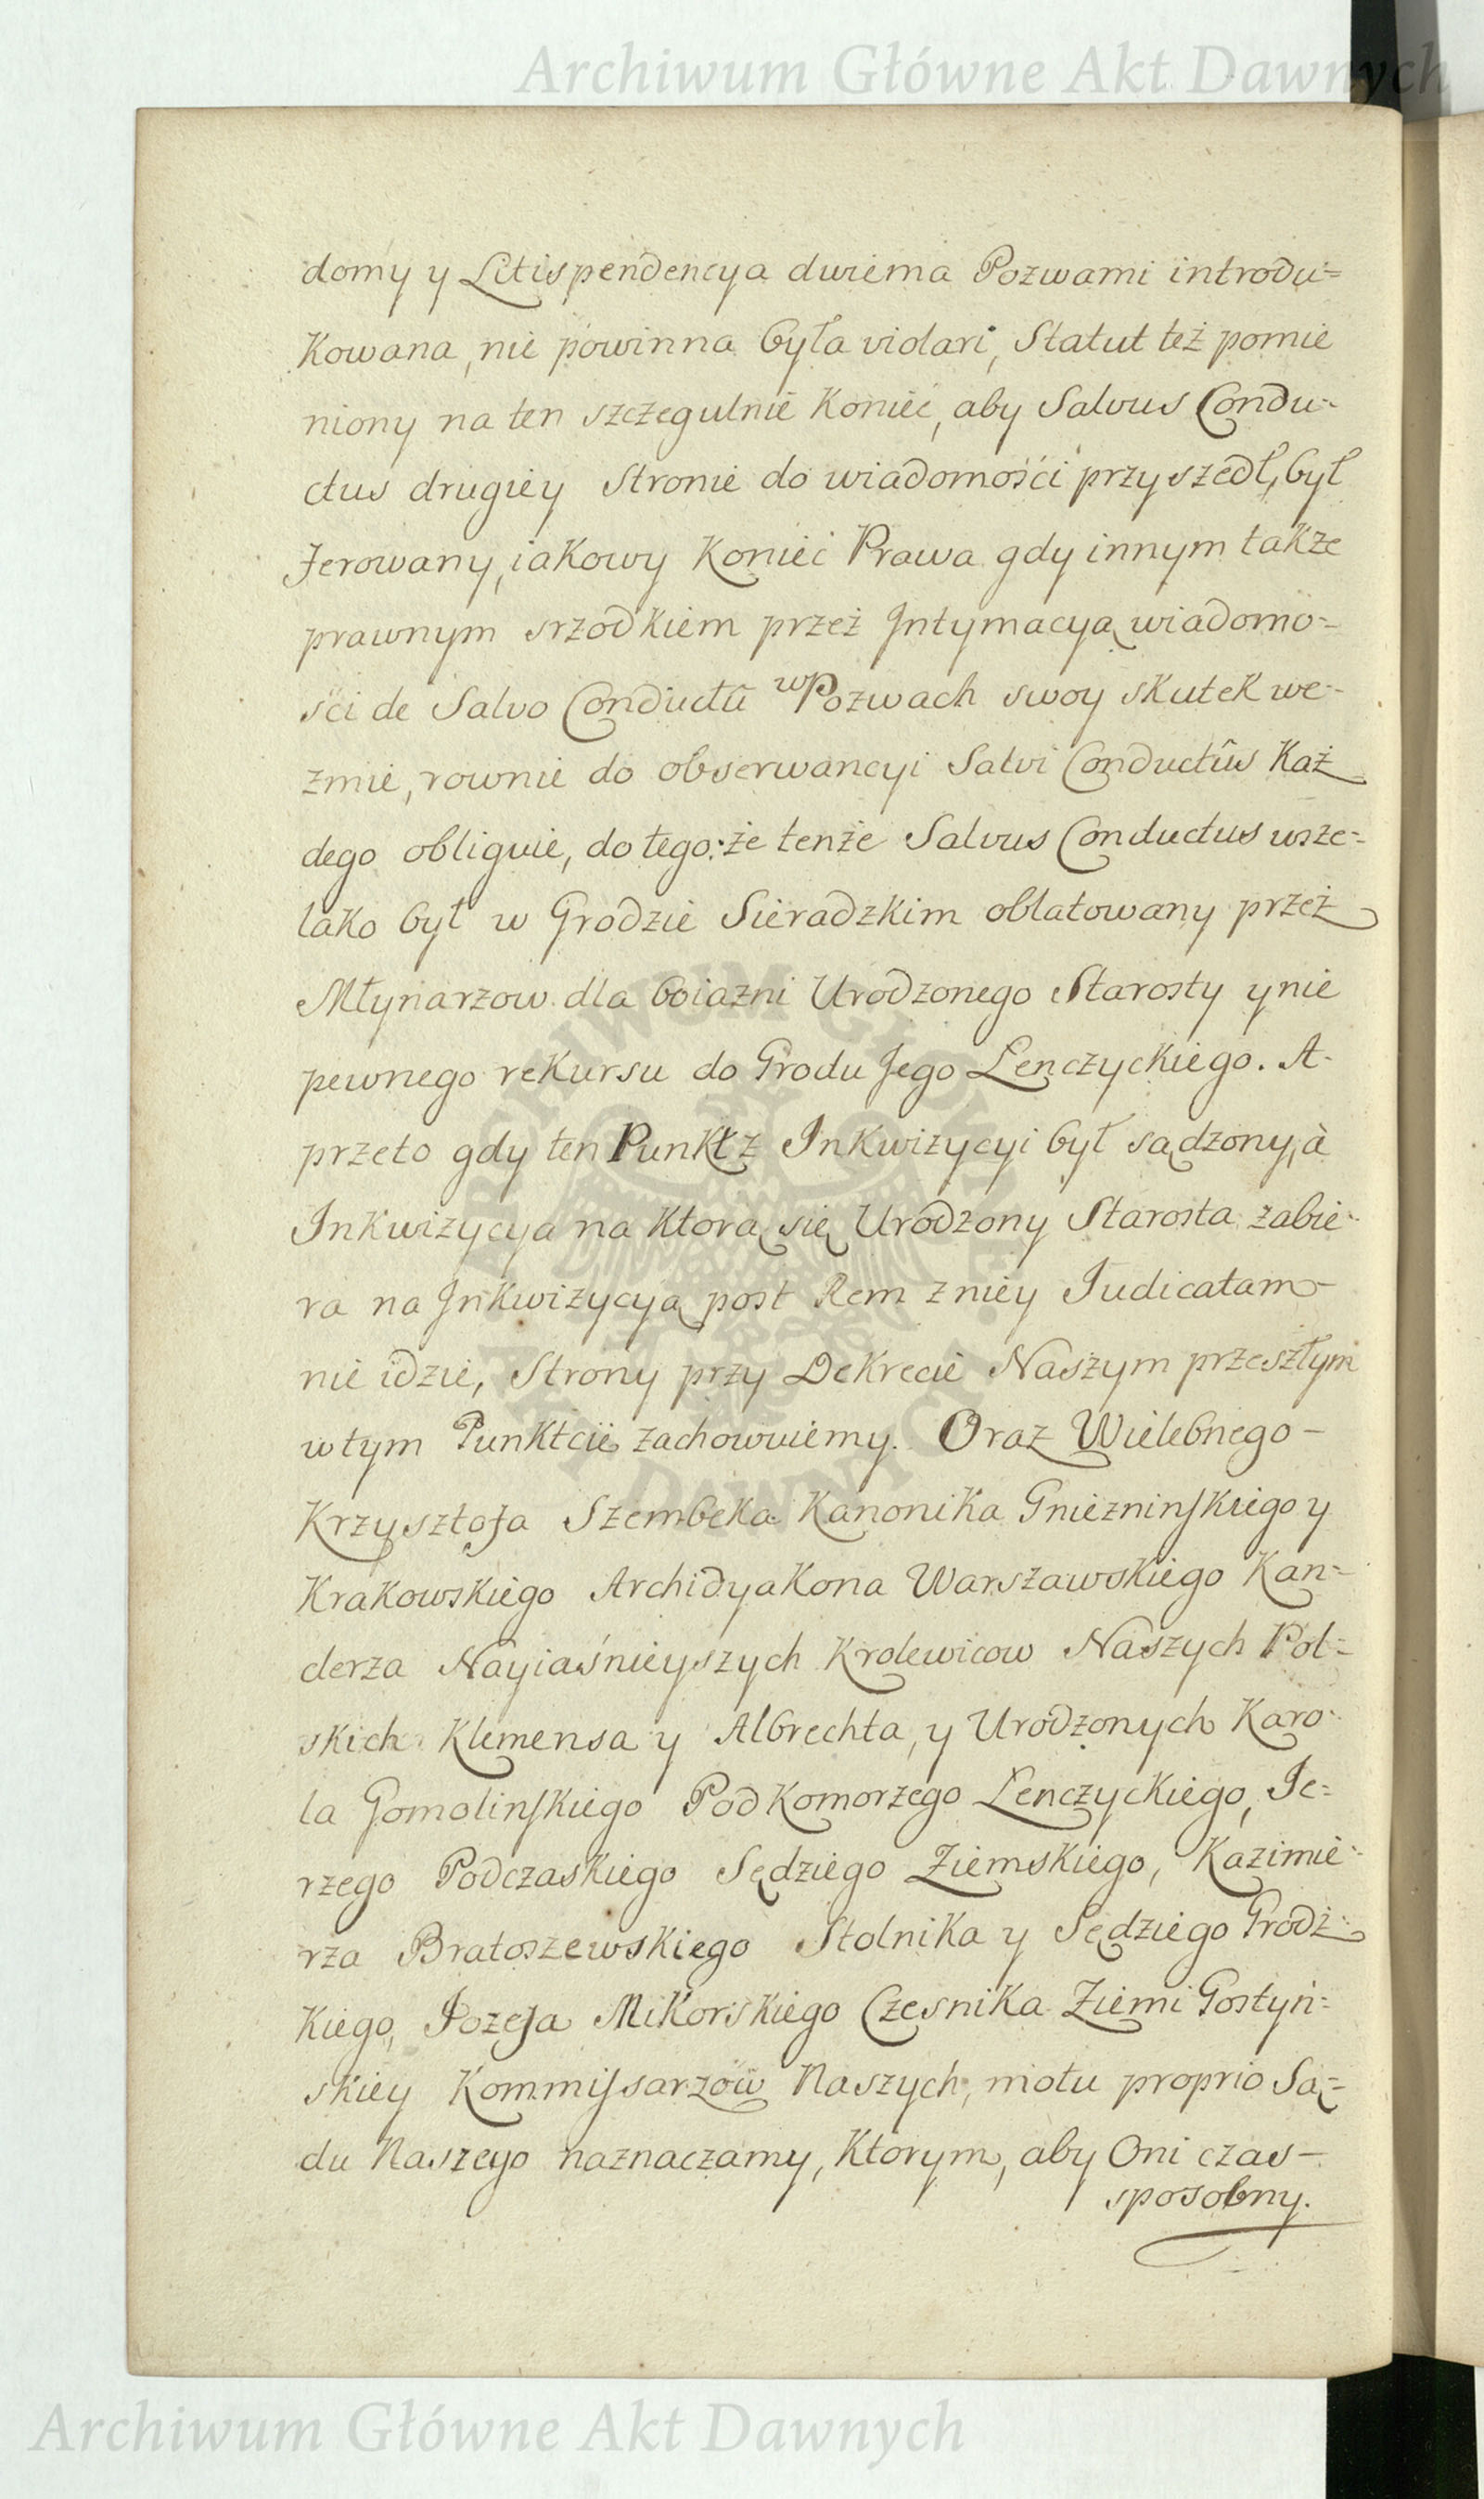 Archiwum Główne Akt Dawnych
domy y Litispendencya dwiema Pozwami introdu=
kowana, nie powinna była violari, Statut też pomie
niony na ten szczegulnie koniec, aby Salvus Condu-
ctus drugiey Stronie do wiadomości przyszedł, był
ferowany, iakowy koniec Prawa gdy innym także
prawnym srzodkiem przez Intymacyą wiadomo=
ści de Salvo Conductû w Pozwach swoy skutek we-
zmie, rownie do obserwancyi Salvi Conductûs Każ
dego obliguie, do tego: że tenże Salvus Conductus wsze=
lako był w Grodzie Sieradzkim oblatowany przez
Młynarzow dla boiazni Urodzonego Starosty y nie
pewnego rekursu do Grodu Jego Lenczyckiego. A-
przeto gdy ten Punkt z Inkwizycyi był sądzony, à
Inkwizycya na ktorą się Urodzony Starosta zabie-
ra na Inkwizycyą post Rem z niey Iudicatam-
nie idzie, Strony przy Dekrecie Naszym przeszłym
w tym Punktcie zachowuiemy. Oraz Wielebnego-
Krzysztofa Szembeka Kanonika Gniezninskiego y
Krakowskiego Archidyakona Warszawskiego Kan=
clerza Nayiaśnieyszych Krolewicow Naszych Pol=
skich Klemensa y Albrechta, y Urodzonych Karo-
la Gomolinskiego Podkomorzego Lenczyckiego, Je=
rzego Podczaskiego Sędziego Ziemskiego, Kazimie-
rza Bratoszewskiego Stolnika y Sędziego Grodz-
kiego, Jozefa Mikorskiego Czesnika Ziemi Gostyń=
skiey Kommissarzow Naszych, motu proprio Są=
du Naszego naznaczamy, Ktorym, aby Oni czas-
sposobny.
ARCHIWUM GŁÓWNE AKT DAWNYCH
Archiwum Główne Akt Dawnych